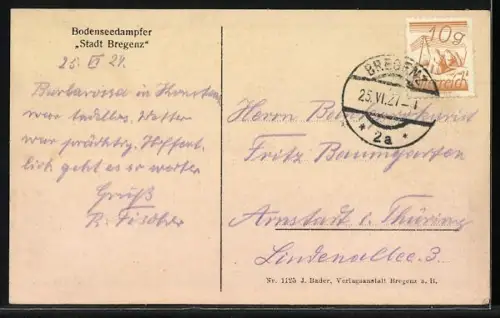 Bodenseedampfer
„Stadt Bregenz“
25. VI 27.
Barbarossa in Konstanz
war tadellos. Wetter
war prächtig. Hoffent-
lich geht es so weiter
Gruß
R. Fischer
10g
BREGENZ
25.VI.27
* 2a *
Herrn
Fritz Baumgarten
Arnstadt i. Thüring
Lindenallee 3.
Nr. 1125 J. Bader, Verlagsanstalt Bregenz a. B.